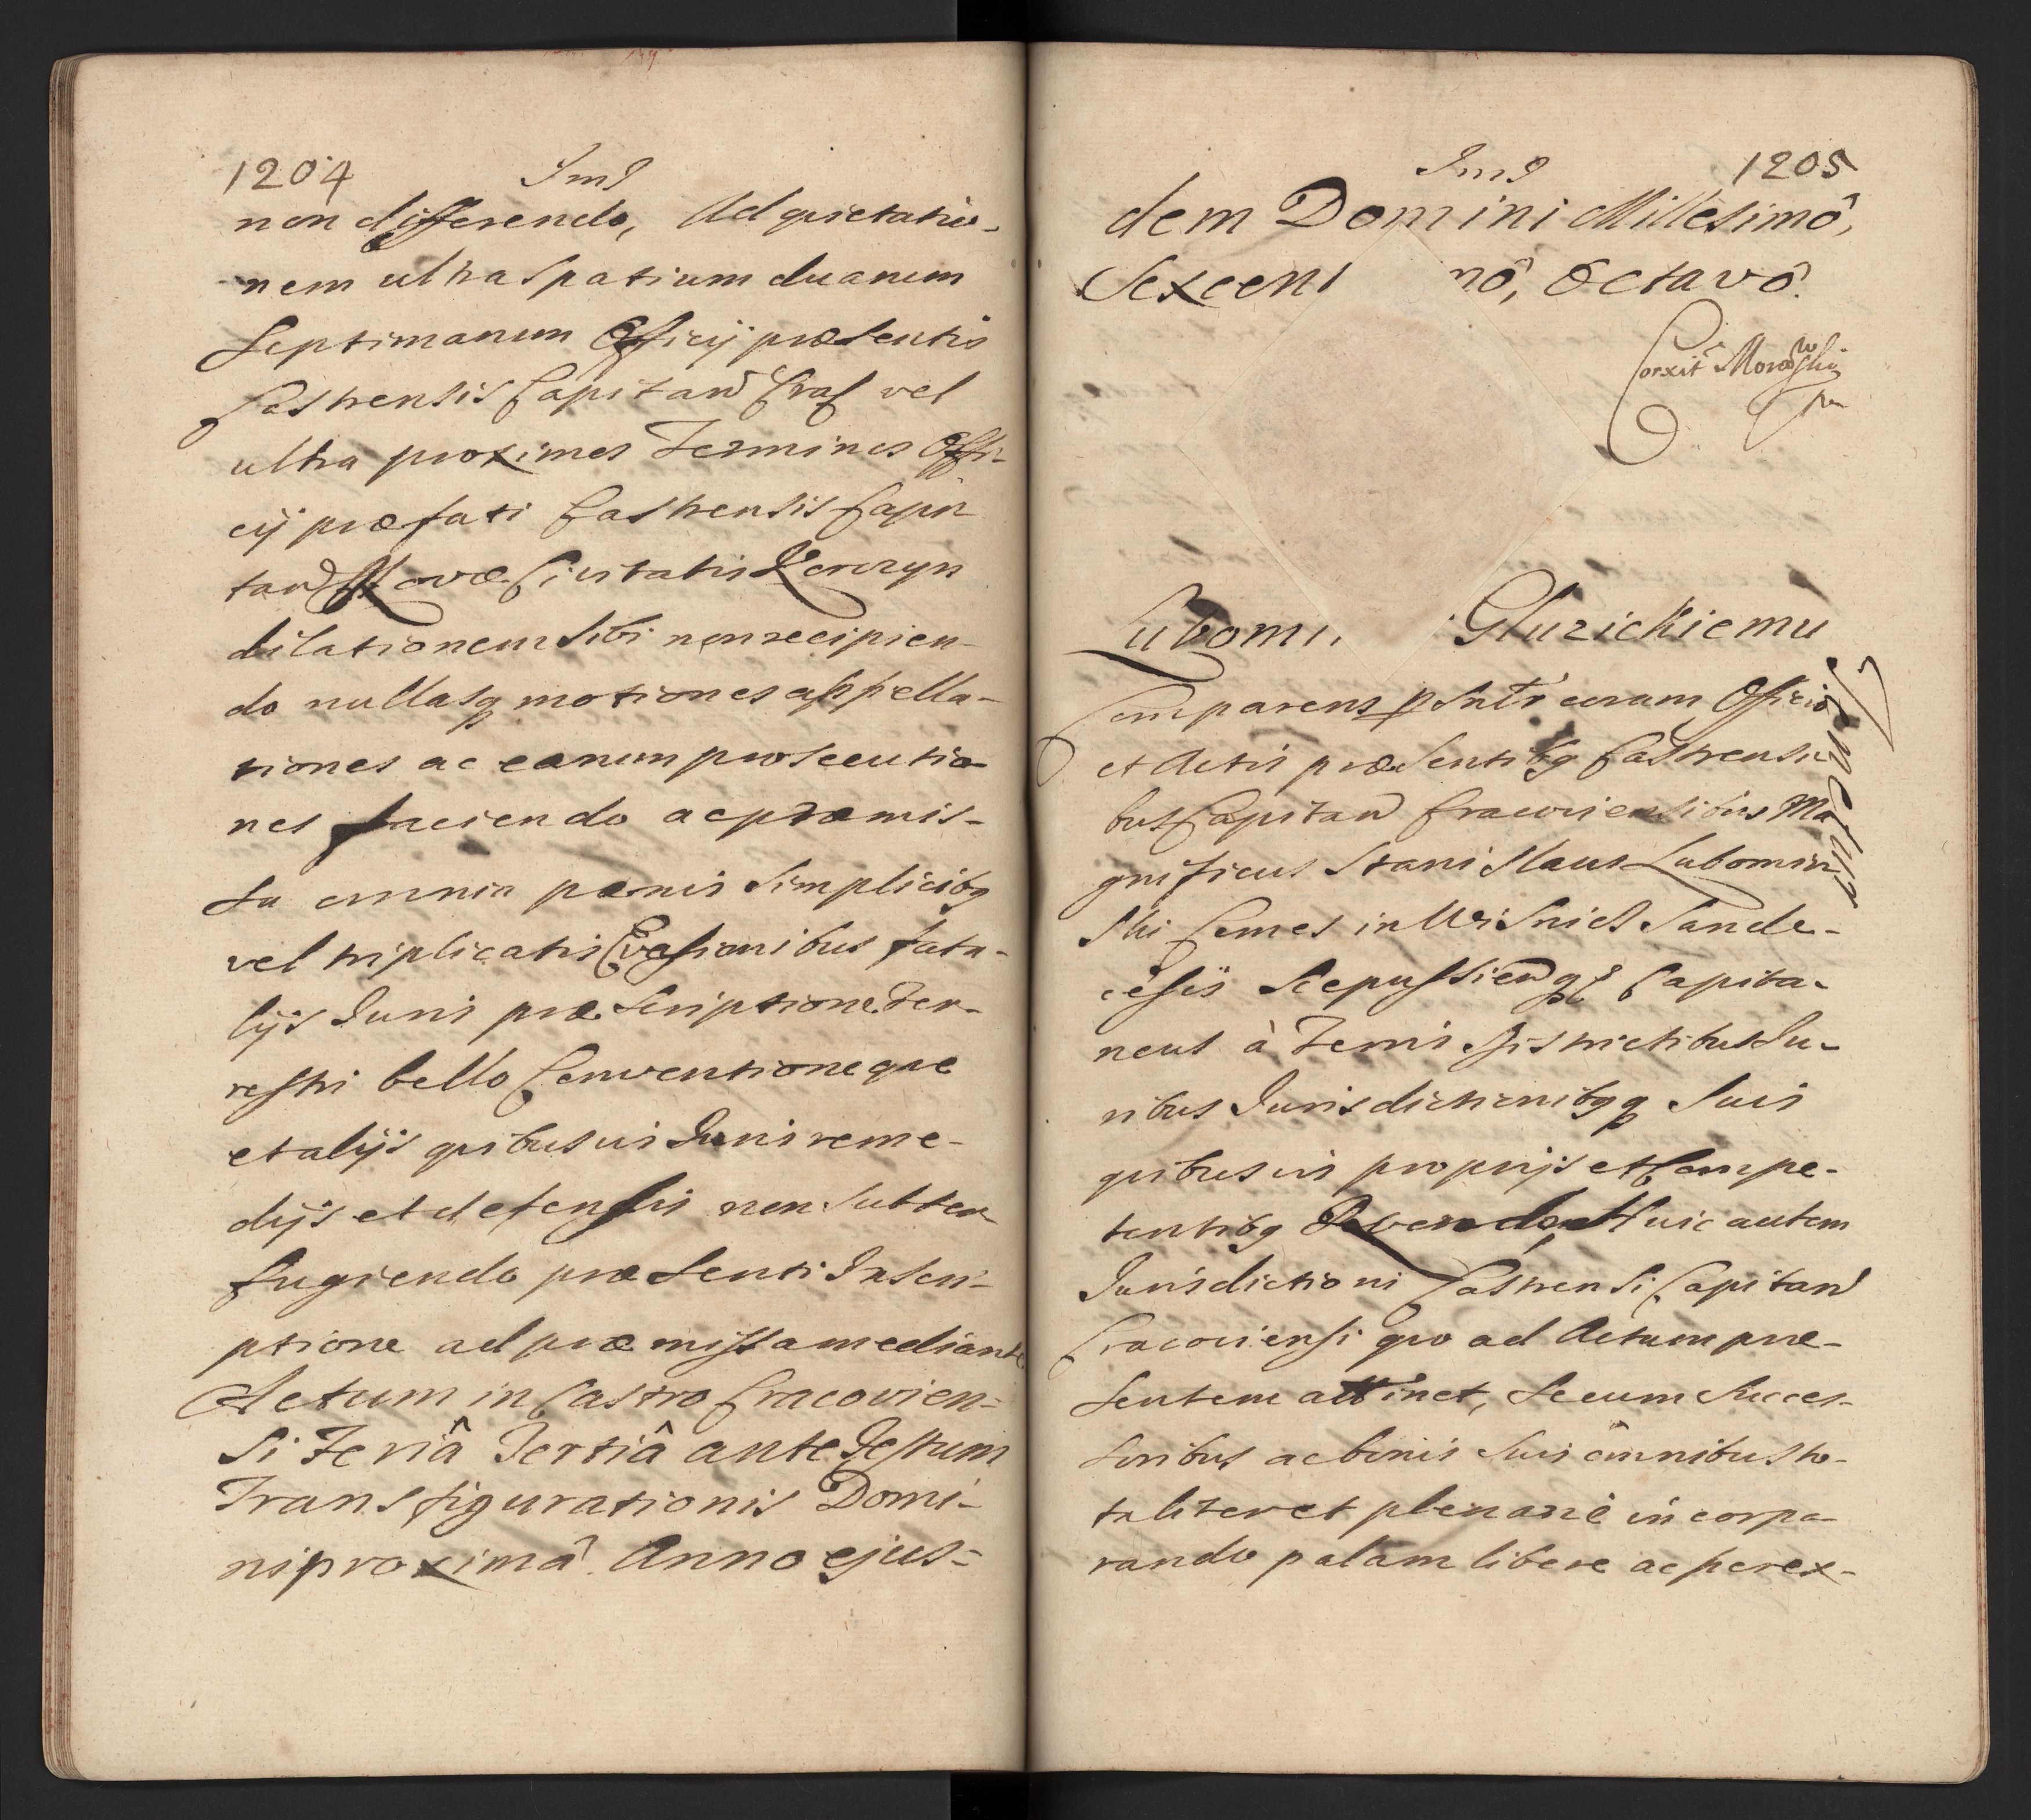 1204
Imd
non differendo, Ad quietatio-
nem ultra spatium duarum
Septimanarum Officij præsentis
Castrensis Capitan Crac vel
ultra proximos Terminos Offi-
cij præfati Castrensis Capi
tan Novæ Civitatis Korczyn
dilationem sibi non recipien-
do nullasq motiones appella-
tiones ac earum prosecutio-
nes faciendo ac præmis-
sa omnia pœnis simplicibq
vel triplicatis Evasionibus fata-
lijs Juris præscriptione Ter-
restri bello Conventioneque
et alijs quibusvis Juris reme-
dijs et defensis non subter-
fugiendo præsenti Inscri-
ptione ad præmissa mediante
Actum in Castro Cracovien=
si Feriâ Tertiâ ante Festum
Transfigurationis Domi-
ni proximâ. Anno ejus=
Imd
1205
dem Domini Millesimô,
Sexcent nô, Octavô.
Corxit Morawski
Lubomi Gluzickiemu
Comparens psntr coram Officio
et Actis præsentibq Castrensi-
bus Capitan Cracoviensibus Ma
gnificus Stanislaus Lubomir
ski Comes in Wisnicz Sande-
cesis Scepussienq Capita-
neus à Terris Districtibus Ju-
ribus Jurisdictionibqq suis
quibusvis proprijs et Compe-
tentibq Recedendo, Huic autem
Jurisdictioni Castrensi Capitan
Cracoviensi quo ad Actum præ-
sentem attinet, se cum succes-
soribus ac bonis suis omnibus to-
taliter et plenariè incorpo-
rando palam libere ac per ex-